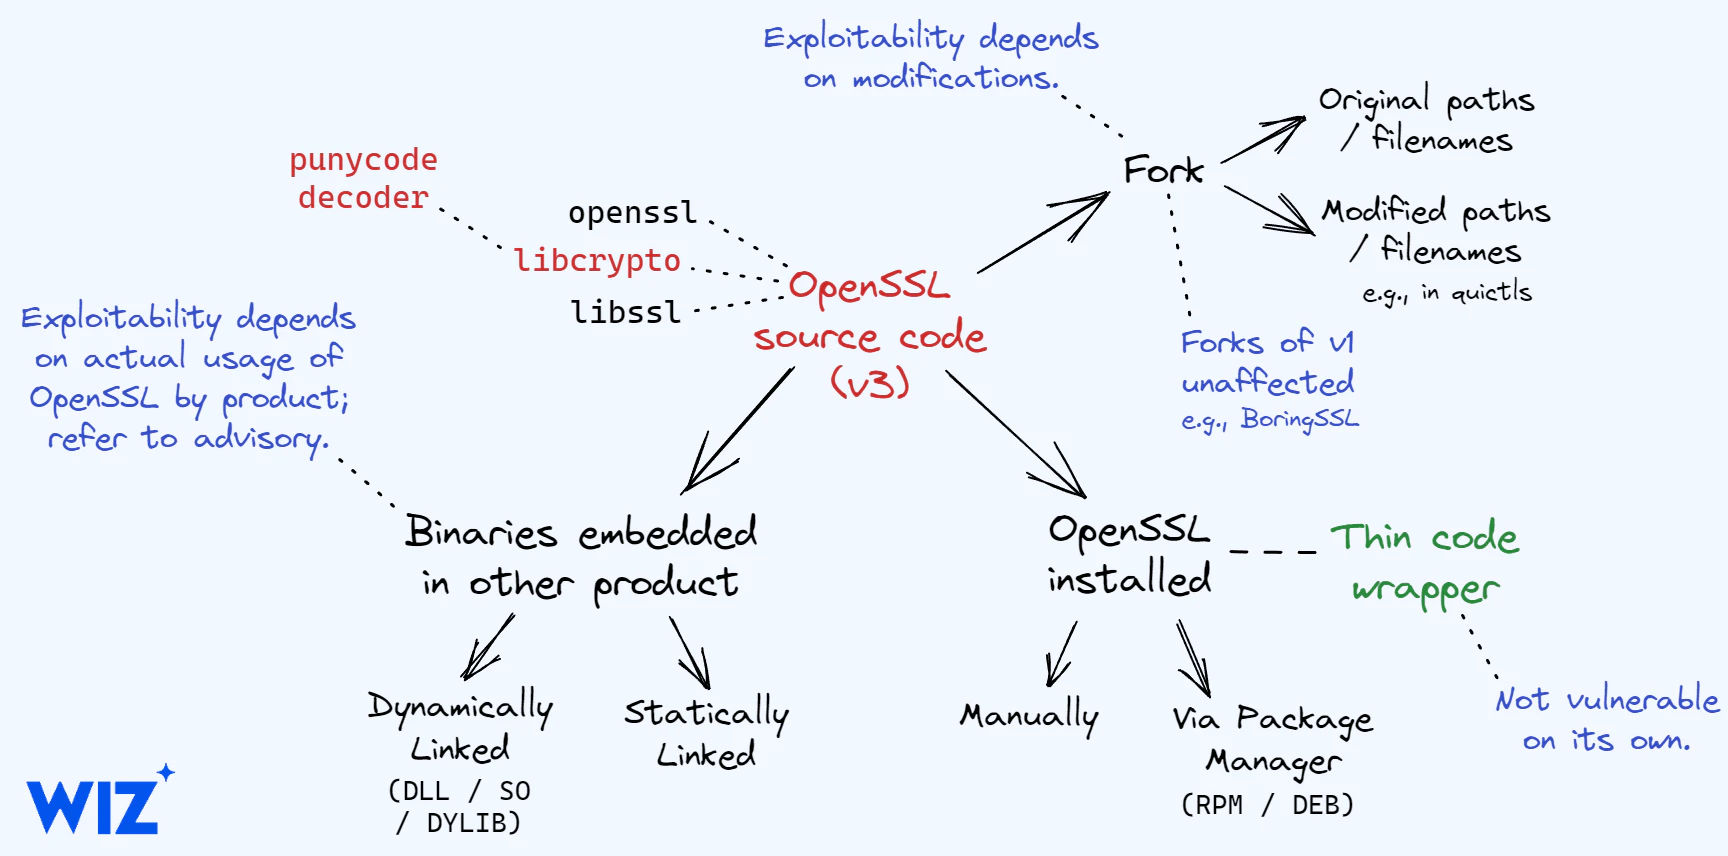 Exploitability depends
on modifications.
Original paths
/ filenames
Fork
Modified paths
/ filenames
e.g., in quictls
punycode
decoder
openssl
libcrypto
libssl
OpenSSL
source code
(v3)
Forks of v1
unaffected
e.g., BoringSSL
Exploitability depends
on actual usage of
OpenSSL by product;
refer to advisory.
Binaries embedded
in other product
OpenSSL
installed
Thin code
wrapper
Dynamically
Linked
(DLL / SO
/ DYLIB)
Statically
Linked
Manually
Via Package
Manager
(RPM / DEB)
Not vulnerable
on its own.
WIZ